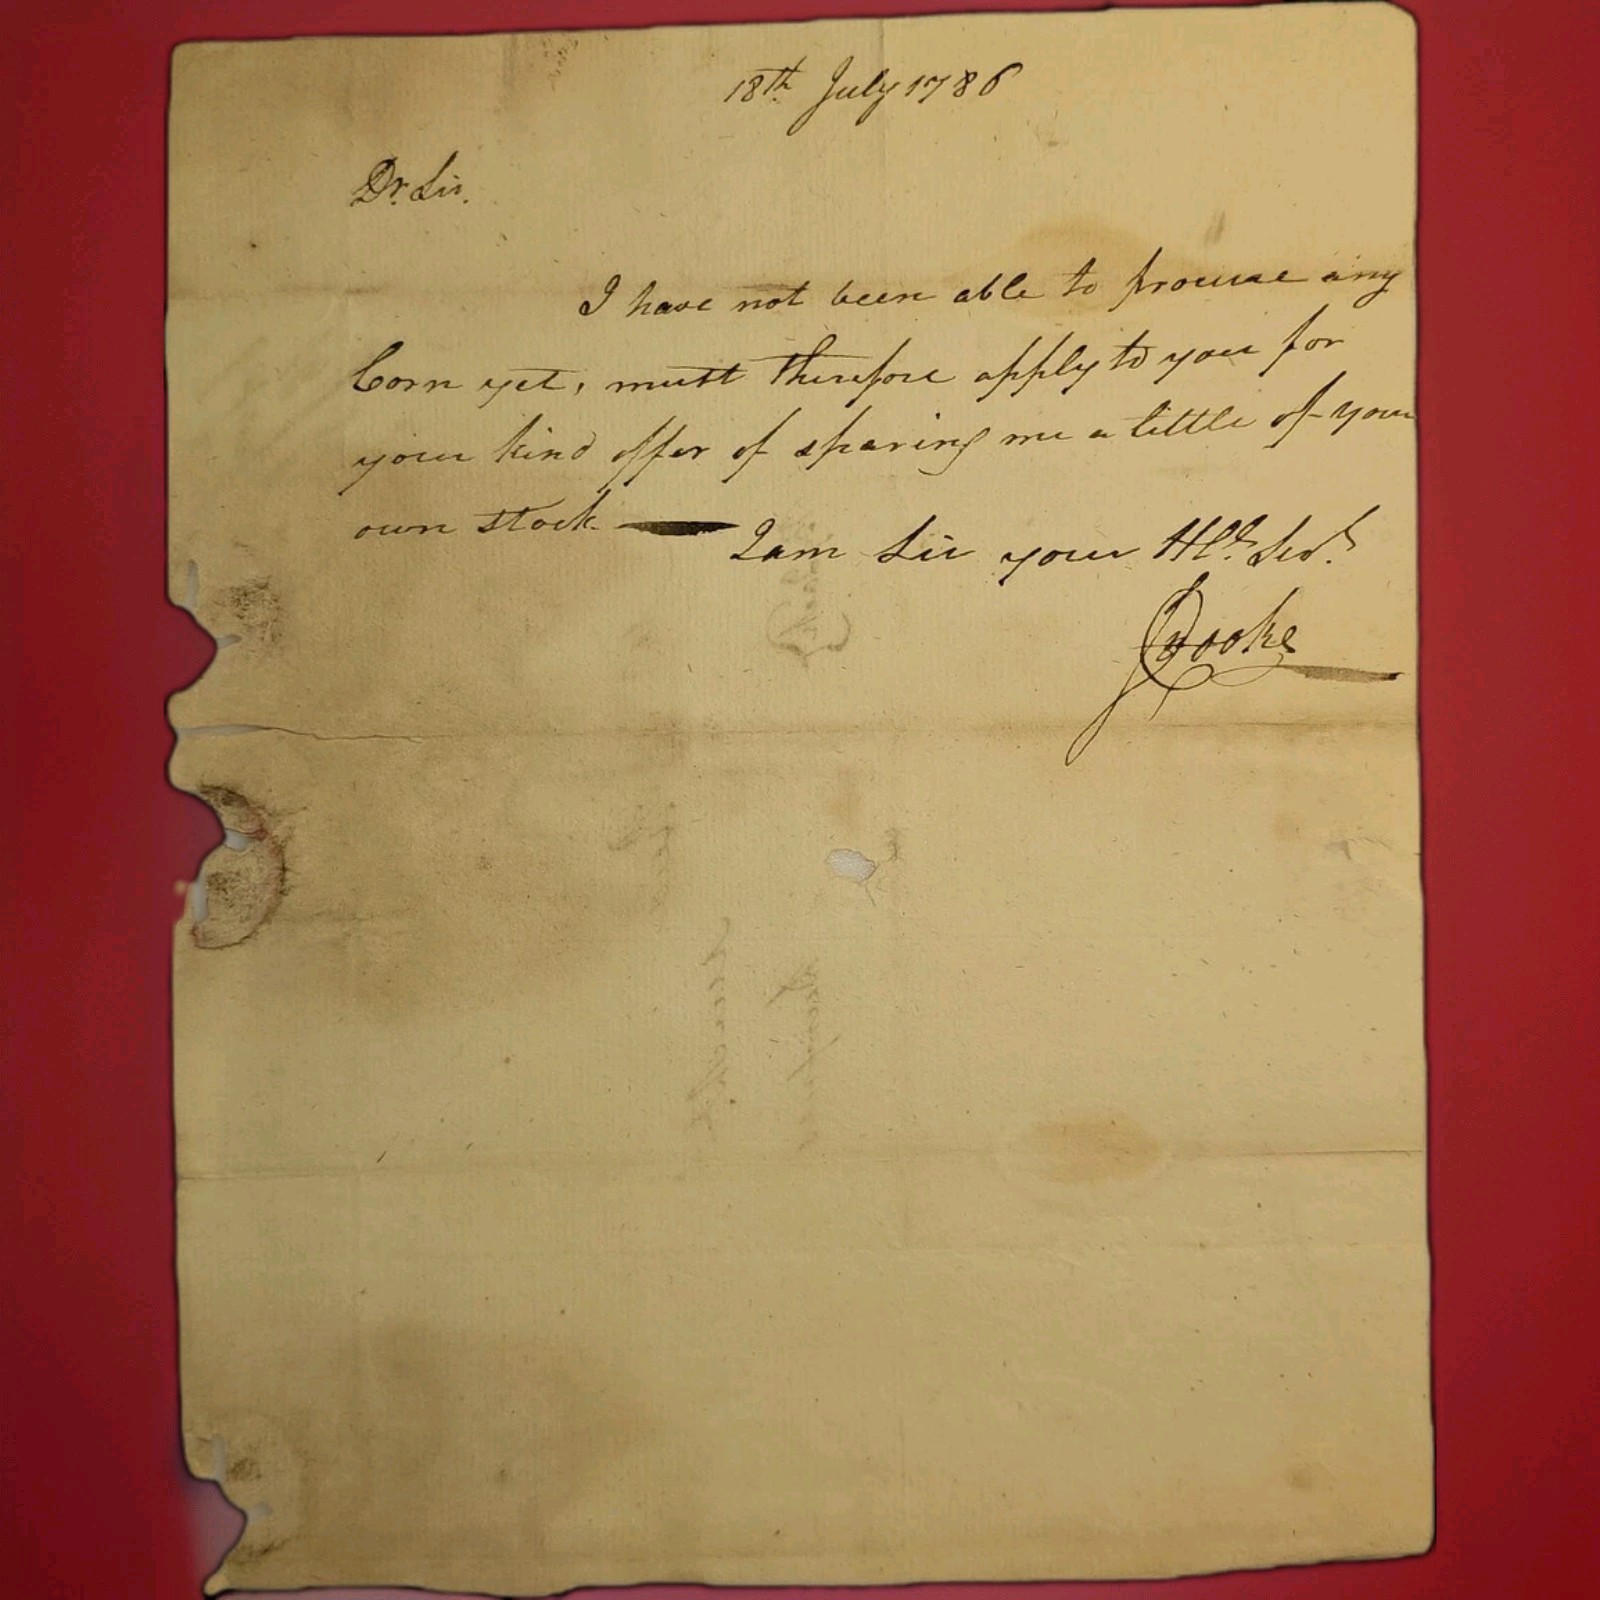 18th July 1786
Dr. Sir.
I have not been able to procure any
Corn yet, must therefore apply to you for
your kind offer of sparing me a little of your
own stock. — I am Sir your Hl. Servt.